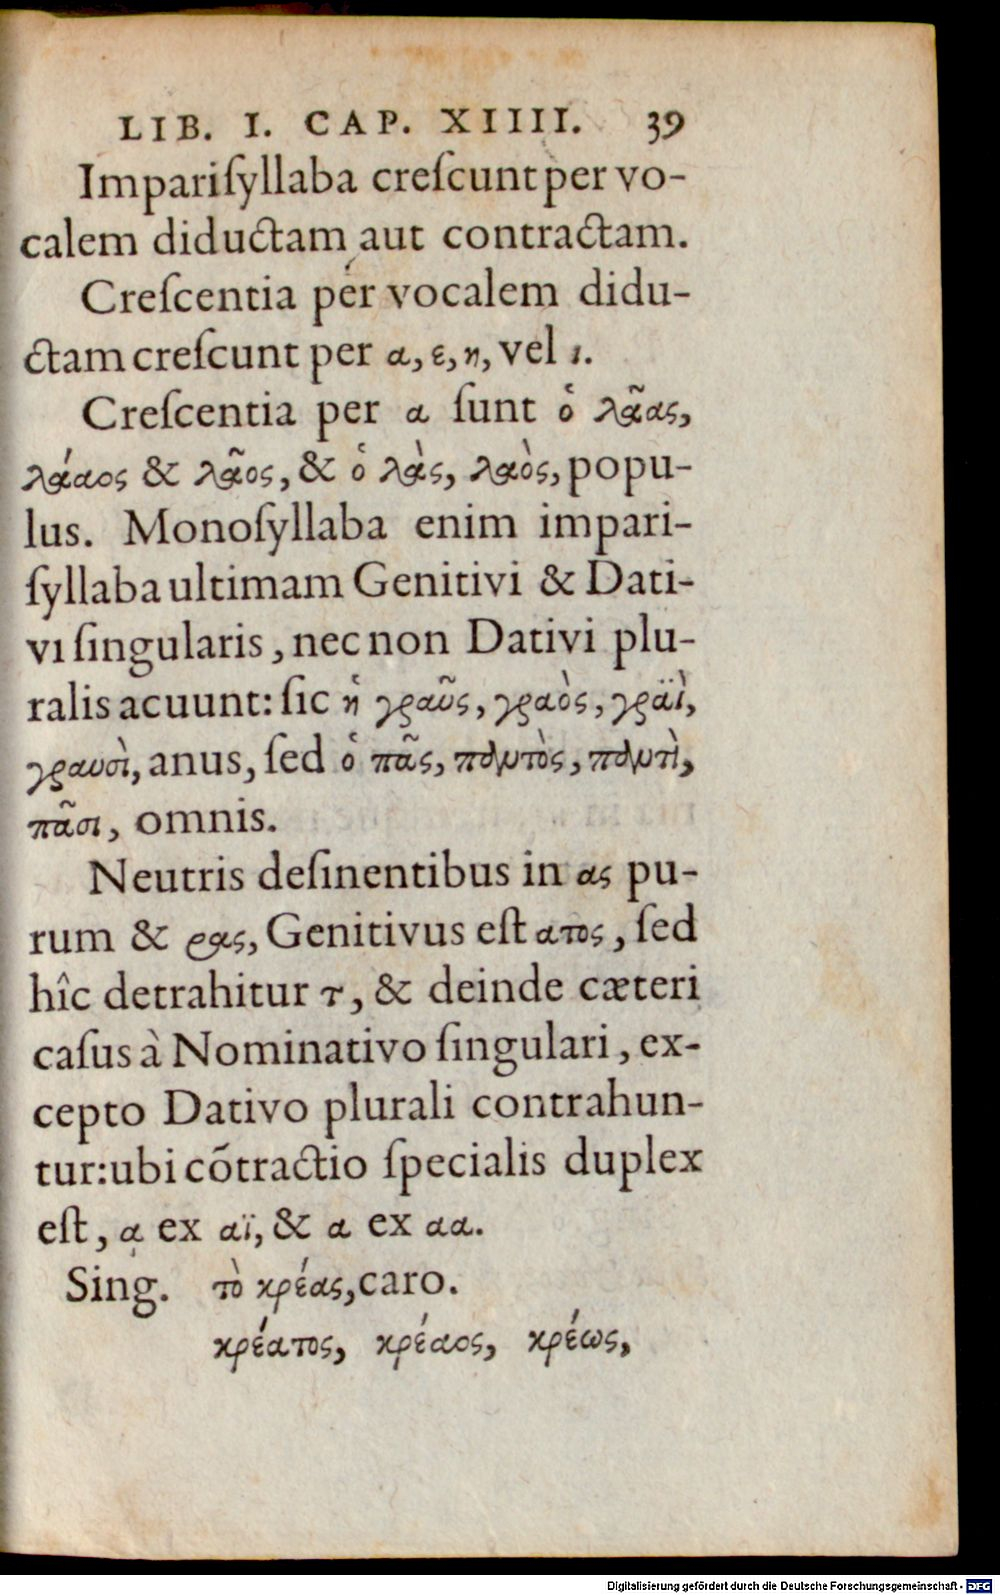 LIB. I. CAP. XIIII. 39
Impariſyllaba creſcunt per vo-
calem diductam aut contractam.
Creſcentia per vocalem didu-
ctam creſcunt per α, ε, η, vel ι.
Creſcentia per α ſunt ὁ λᾶας,
λάαος & λᾶος, & ὁ λὰς, λαὸς, popu-
lus. Monoſyllaba enim impari-
ſyllaba ultimam Genitivi & Dati-
vi ſingularis, nec non Dativi plu-
ralis acuunt: ſic ἡ γραῦς, γραὸς, γραῒ,
γραυσὶ, anus, ſed ὁ πᾶς, παντὸς, παντὶ,
πᾶσι, omnis.
Neutris deſinentibus in ας pu-
rum & ρας, Genitivus eſt ατος, ſed
hîc detrahitur τ, & deinde cæteri
caſus à Nominativo ſingulari, ex-
cepto Dativo plurali contrahun-
tur: ubi cōtractio ſpecialis duplex
eſt, ᾳ ex αϊ, & α ex αα.
Sing. τὸ κρέας, caro.
κρέατος, κρέαος, κρέως,
Digitalisierung gefördert durch die Deutsche Forschungsgemeinschaft - DFG